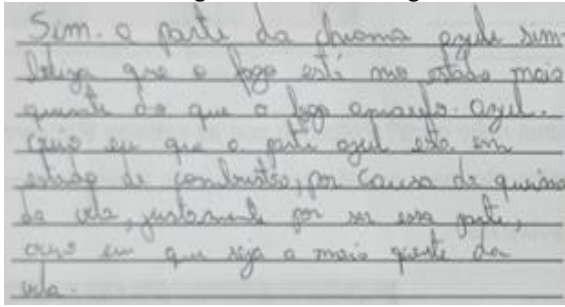 Sim. a parte da chama azul sim-
boliza que o fogo está no estado mais
quente do que o fogo amarelo-azul.
creio eu que a parte azul está em
estado de combustão, por causa da queima
da vela, justamente por ser essa parte,
creio eu que seja a mais quente da
vela.